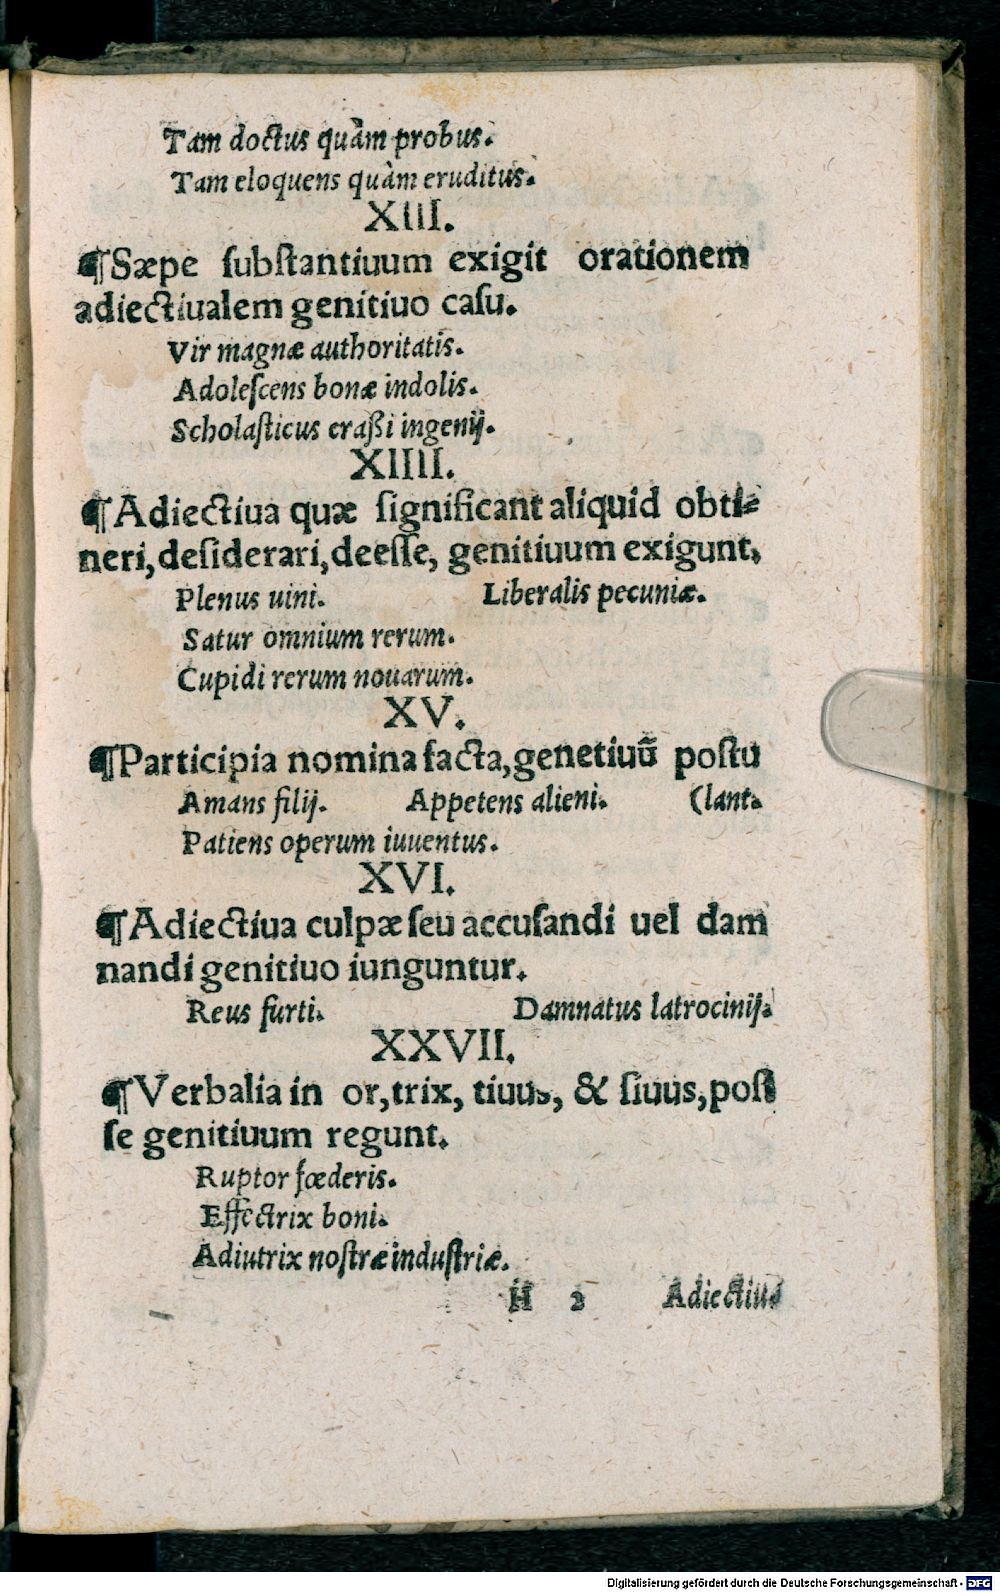 Tam doctus quàm probus.
Tam eloquens quàm eruditus.
XIII.
¶Sæpe ſubſtantiuum exigit orationem
adiectiualem genitiuo caſu.
Vir magnæ authoritatis.
Adoleſcens bonæ indolis.
Scholaſticus craßi ingenij.
XIIII.
¶Adiectiua quæ ſignificant aliquid obti⸗
neri, deſiderari, deeſſe, genitiuum exigunt.
Plenus uini. Liberalis pecuniæ.
Satur omnium rerum.
Cupidi rerum nouarum.
XV.
¶Participia nomina facta, genetiuū poſtu
Amans filij. Appetens alieni. (lant.
Patiens operum iuuentus.
XVI.
¶Adiectiua culpæ ſeu accuſandi uel dam
nandi genitiuo iunguntur.
Reus furti. Damnatus latrocinij.
XXVII.
¶Verbalia in or, trix, tiuus, & ſiuus, poſt
ſe genitiuum regunt.
Ruptor fœderis.
Effectrix boni.
Adiutrix noſtræ induſtriæ.
H 2 Adiectiua
Digitalisierung gefördert durch die Deutsche Forschungsgemeinschaft - DFG